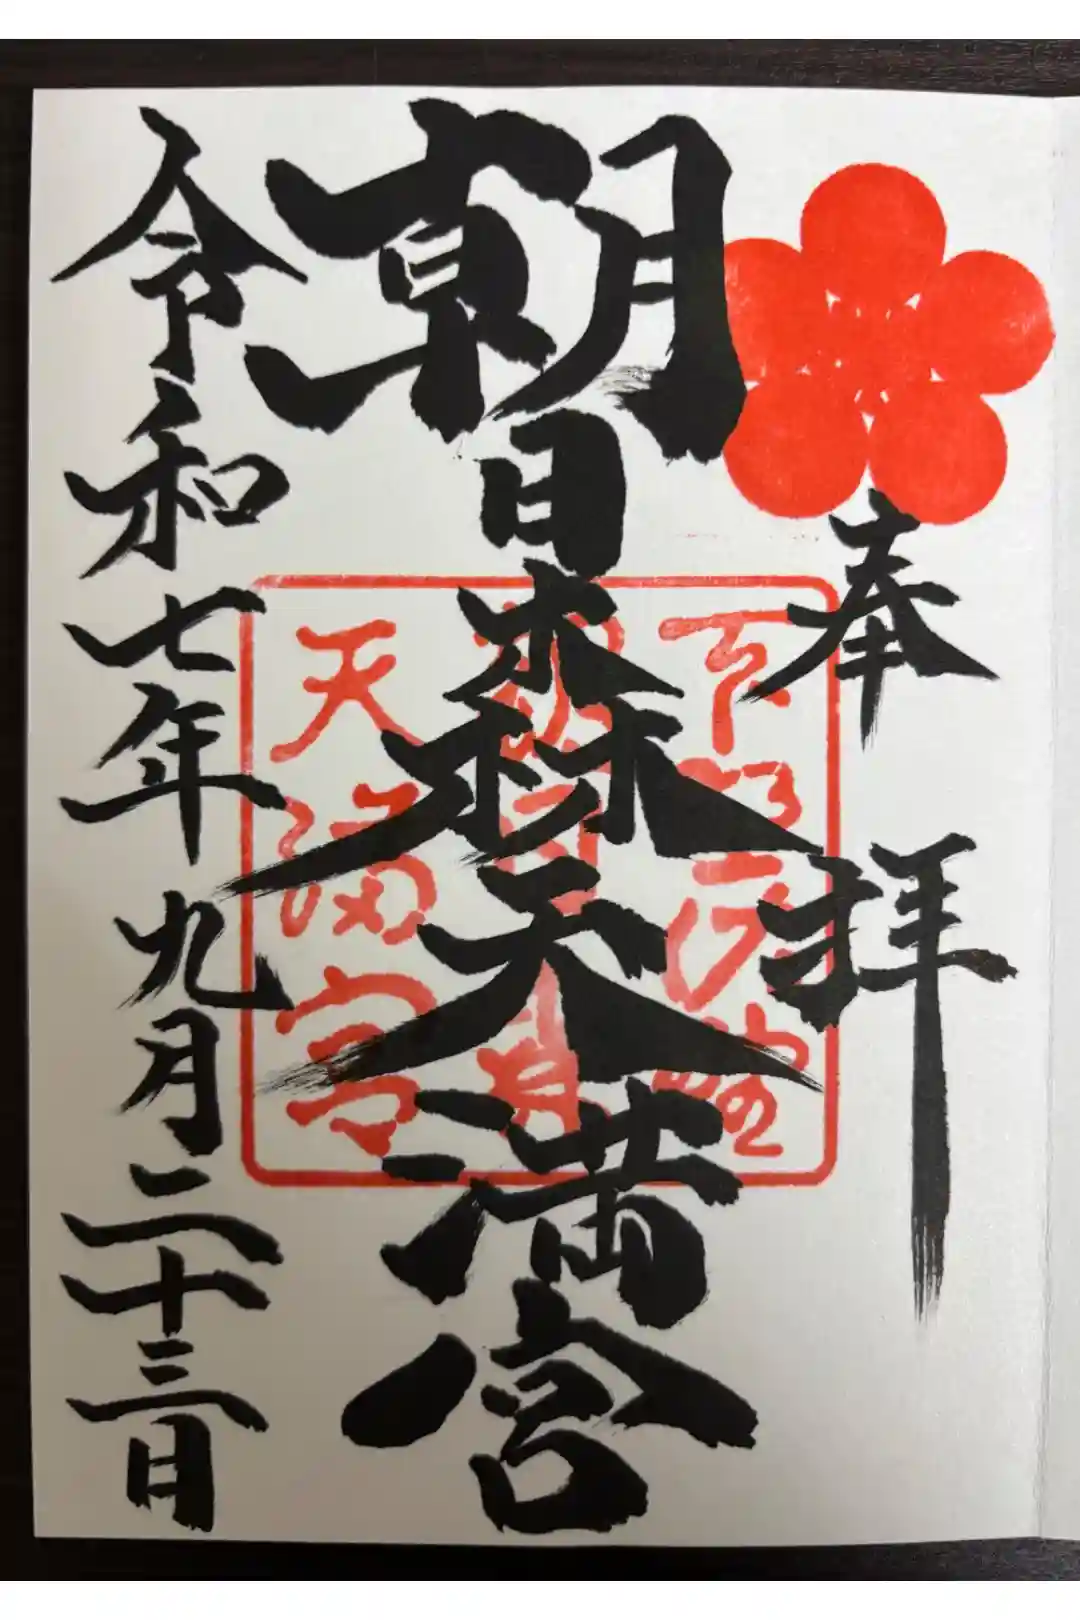 奉拝
朝日森天満宮
令和七年九月二十三日
下野佐野
朝日森
天満宮